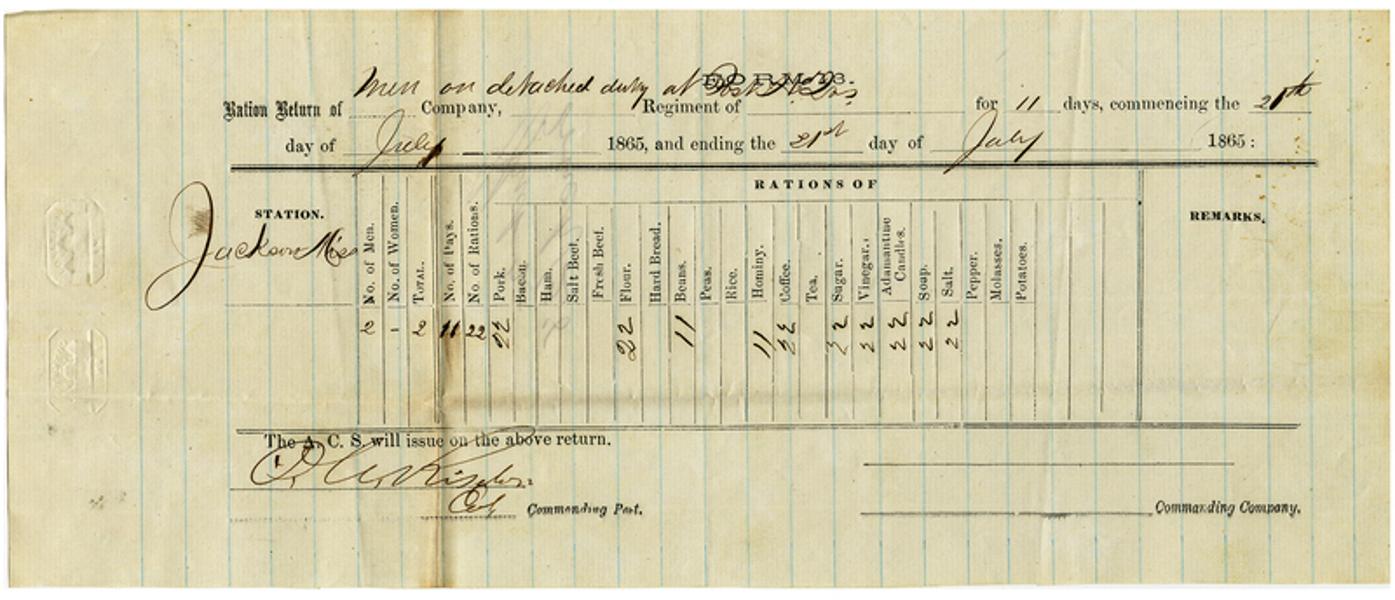 FORM 13.
Men on detached duty at Post Hd Qrs
Ration Return of Company, Regiment of for 11 days, commencing the
day of July 1865, and ending the 21st day of July 1865:
RATIONS OF
STATION. No. of Men. No. of Women. TOTAL. No. of Days. No. of Rations. Pork. Bacon. Ham. Salt Beef. Fresh Beef. Flour. Hard Bread. Beans. Peas. Rice. Hominy. Coffee. Tea. Sugar. Vinegar. Adamantine Candles. Soap. Salt. Pepper. Molasses. Potatoes. REMARKS.
Jackson Miss
2 - 2 11 22 22 22 11 11 22 22 22 22 22 22
The A. C. S. will issue on the above return.
Col Commanding Post. Commanding Company.